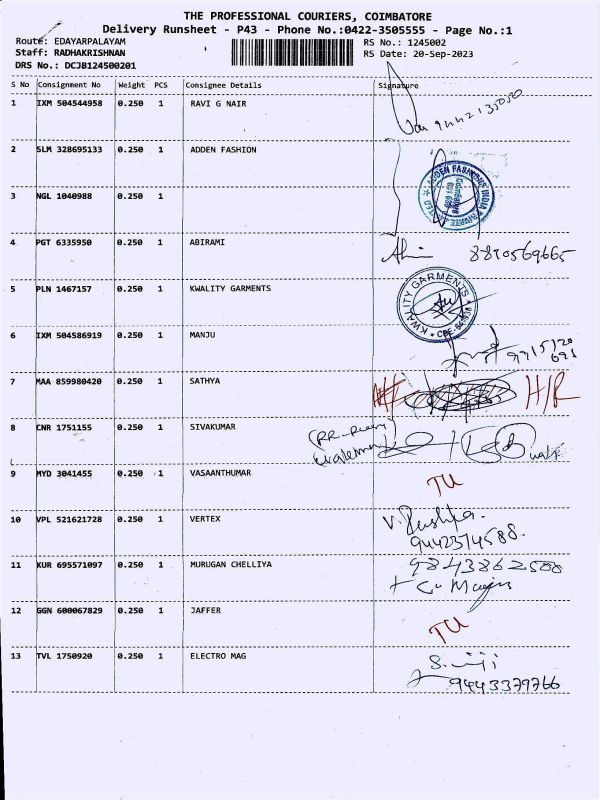 THE PROFESSIONAL COURIERS, COIMBATORE
Delivery Runsheet - P43 - Phone No.:0422-3505555 - Page No.:1
Route: EDAYARPALAYAM
RS No.: 1245002
Staff: RADHAKRISHNAN
RS Date: 20-Sep-2023
DRS No.: DCJB124500201
S No Consignment No Weight PCS Consignee Details Signature
1 IXM 504544958 0.250 1 RAVI G NAIR
2 SLM 328695133 0.250 1 ADDEN FASHION
3 NGL 1040988 0.250 1
4 PGT 6335950 0.250 1 ABIRAMI 8870569665
5 PLN 1467157 0.250 1 KWALITY GARMENTS KWALITY GARMENTS
6 IXM 504586919 0.250 1 MANJU
7 MAA 859980420 0.250 1 SATHYA H/R
8 CNR 1751155 0.250 1 SIVAKUMAR
9 MYD 3041455 0.250 1 VASAANTHUMAR TU
10 VPL 521621728 0.250 1 VERTEX V. Pushpa.
9442314588.
11 KUR 695571097 0.250 1 MURUGAN CHELLIYA 9843862500
12 GGN 600067829 0.250 1 JAFFER TU
13 TVL 1750920 0.250 1 ELECTRO MAG
9443379766